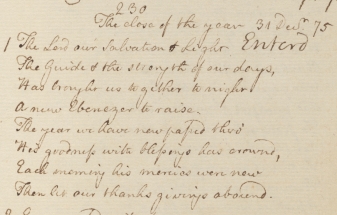 230
The close of the year 31 Decr. 75
Enterd
1 The Lord our Salvation & Light
The Guide & the strength of our days,
Has brought us together to night
A new Ebenezer to raise.
The year we have now passed thro'
His goodness with blessings has crownd,
Each morning his mercies were new
Then let our thanks givings abound.